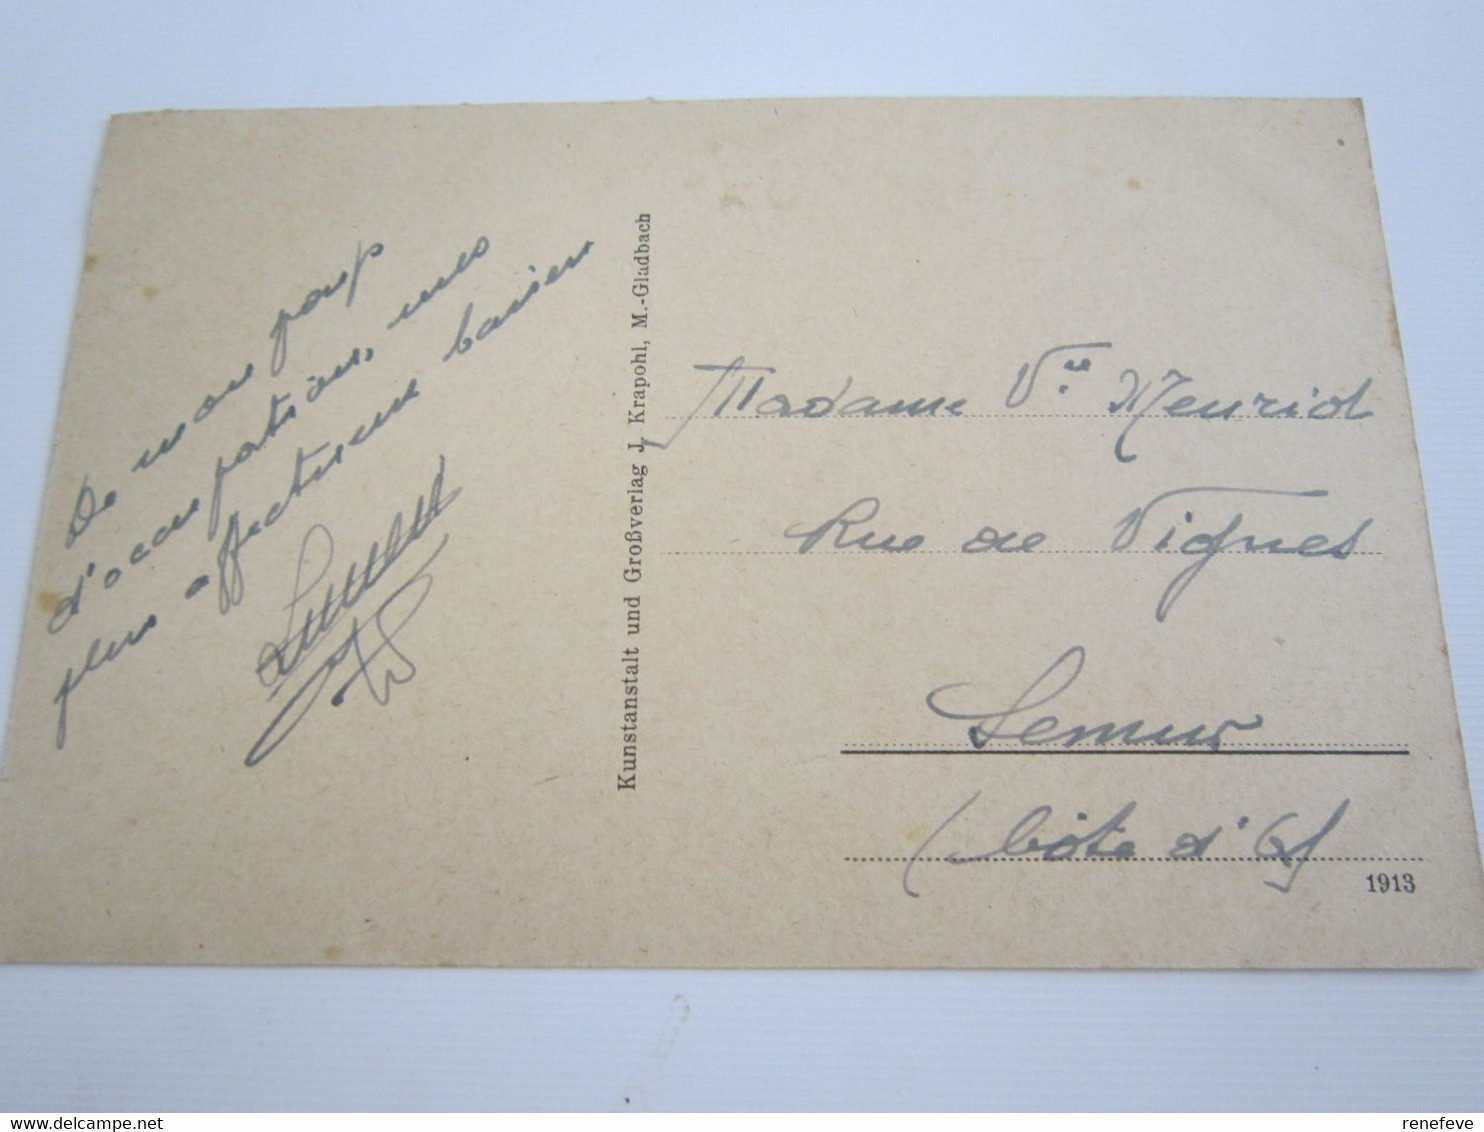 De mon pays
d'occupations, mes
plus affectueux baisers
Kunstanstalt und Großverlag J. Krapohl, M.-Gladbach
Madame Vve Henriot
Rue de Vignes
Semur
(Côte d'Or
1913
www.delcampe.net
renefeve